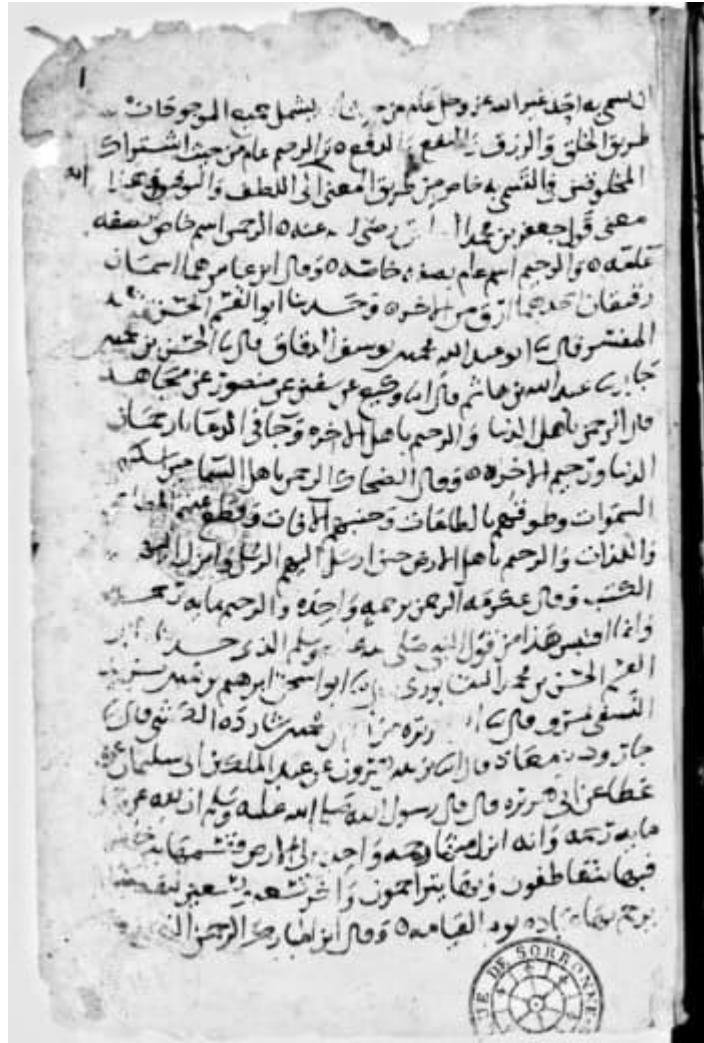 ١
ان يسمى به احد غير الله عز وجل عام من حيث يشمل جميع الموجودات
طريق الخلق والرزق والنفع والدفع ٥ والرحيم عام من حيث اشتراك
المخلوقين في التسمى به خاص من طريق المعنى الى اللطف والتوفيق وهذا
معنى قول جعفر بن محمد رضى عنه ٥ الرحمن اسم خاص بصفه
عامه ٥ والرحيم اسم عام بصفه خاصه ٥ وقال ابن عباس هما اسمان
رقيقان احدهما ارق من الاخر ٥ وحدثنا ابو القسم الحسن
المفسر قال ابو عبد الله محمد بن يوسف الدقاق قال الحسن بن محمد بن
جابر عبد الله بن هاشم قال انا وكيع عن سفين عن منصور عن مجاهد
قال الرحمن باهل الدنيا والرحيم باهل الاخره وجا فى الدعا يا رحمان
الدنيا ورحيم الاخره ٥٥ وقال الضحاك الرحمن باهل السما حين اسكنهم
السموات وطوقهم الطاعات وجنبهم الافات وقطع عنهم المطاعم
واللذات والرحيم باهل الارض حين ارسل اليهم الرسل وانزل عليهم
الكتب وقال عكرمه الرحمن برحمه واحده والرحيم بمايه رحمه
وانما اقتبس هذا من قول النبى صلى وسلم الذى حدثنا
القسم الحسن بن محمد النيسابورى ابو اسحق ابرهيم بن محمد بن يزيد
النسفى بمرو قال
جارود بن معاذ قال عن عبد الملك بن ابى سليمان عن
عطا عن ابى هريره قال قال رسول الله صلى الله عليه وسلم ان لله عز
مايه رحمه وانه انزل منها رحمه واحده الى الارض فقسمها بين
فبها يتعاطفون وبها يتراحمون واخر تسعه وتسعين لنفسه
يرحم بها عباده يوم القيامه ٥ وقال ابن المبارك الرحمن الذى
UE DE SORBONNE